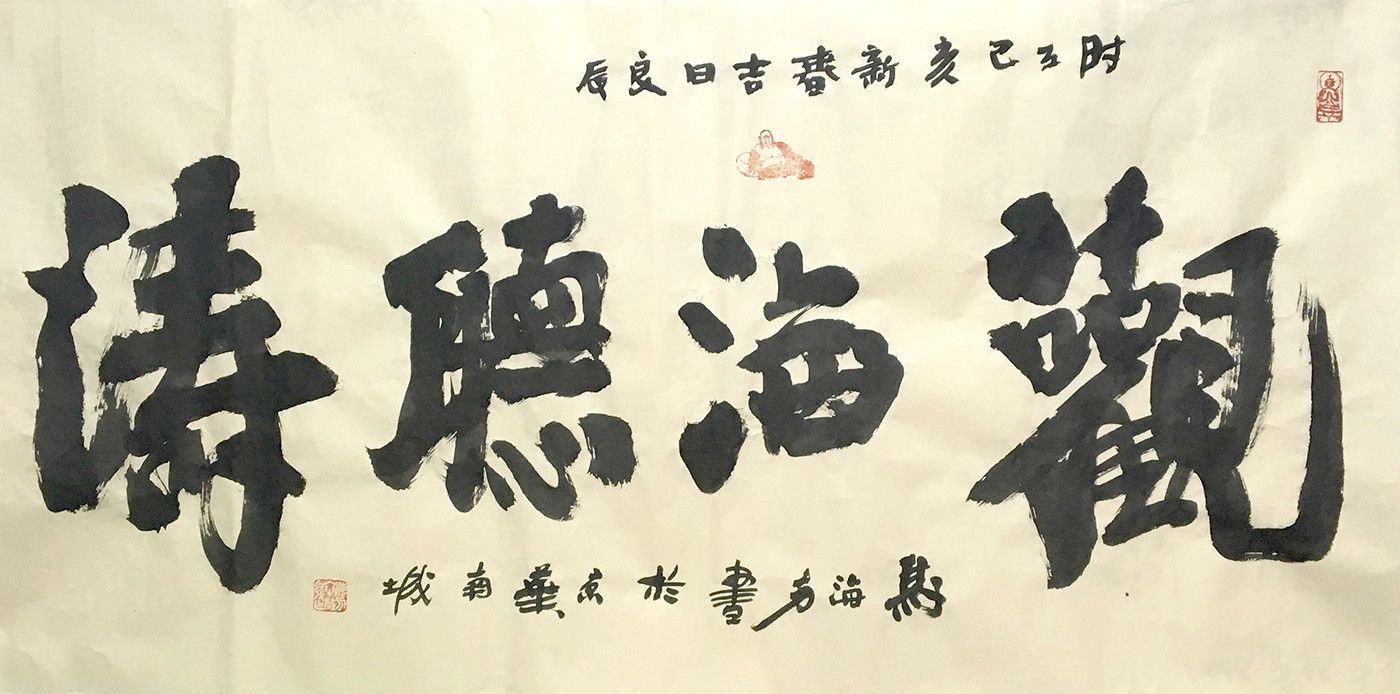 时在己亥新春吉日良辰
觀海聽濤
海方書於京華南城